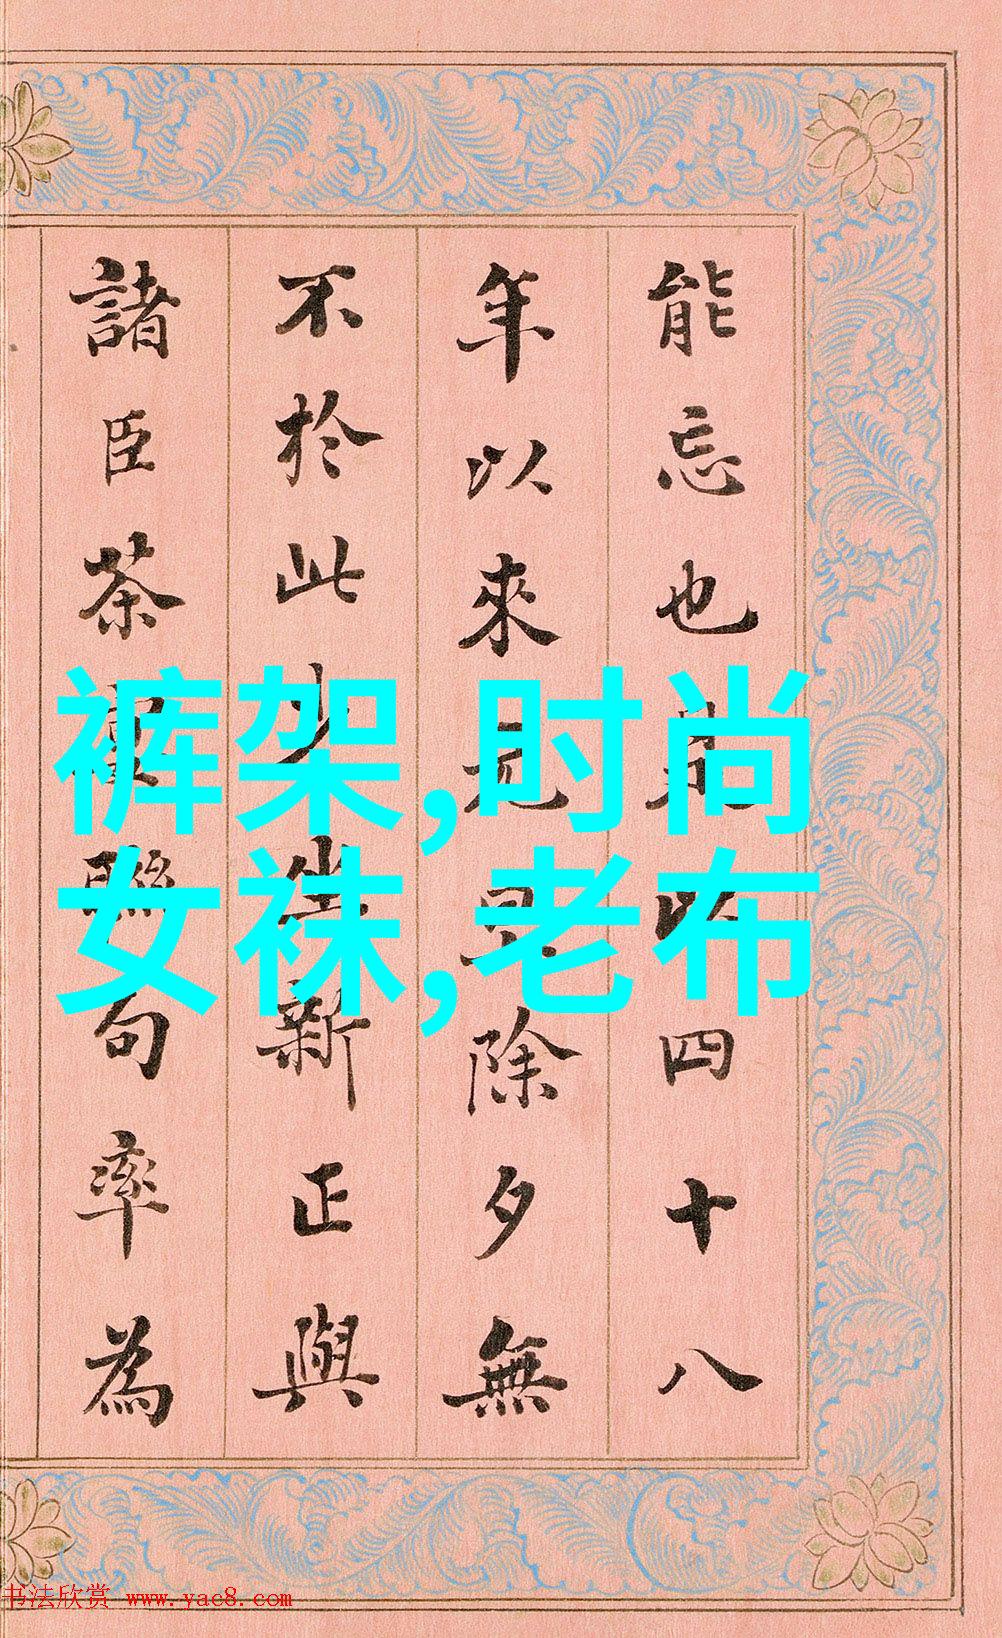 能忘也是以四十八
年以來元旦除夕無
不於此少坐新正與
諸臣茶宴聯句率為
裤架,时尚
女袜,老布
书法欣赏 www.yac8.com